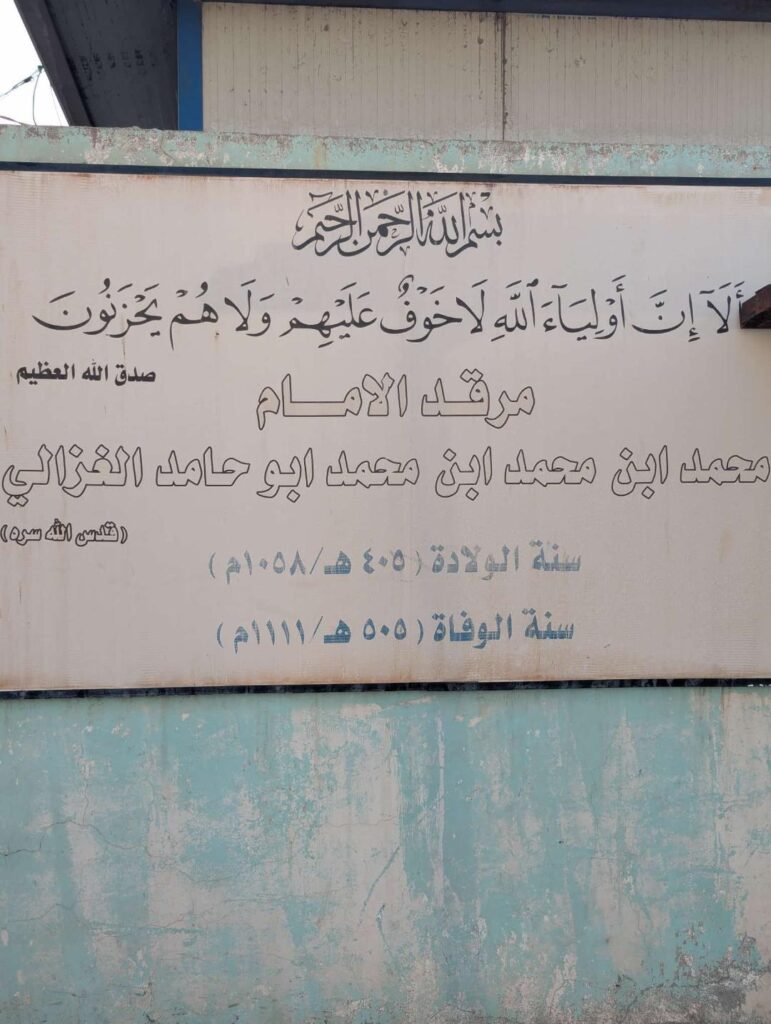 بِسْمِ اللَّهِ الرَّحْمَنِ الرَّحِيمِ
أَلَآ إِنَّ أَوْلِيَآءَ ٱللَّهِ لَا خَوْفٌ عَلَيْهِمْ وَلَا هُمْ يَحْزَنُونَ
صدق الله العظيم
مرقد الامام
محمد ابن محمد ابن محمد ابو حامد الغزالي
(قدس الله سره)
سنة الولادة (٤٠٥ هـ/١٠٥٨م)
سنة الوفاة (٥٠٥ هـ/١١١١م)